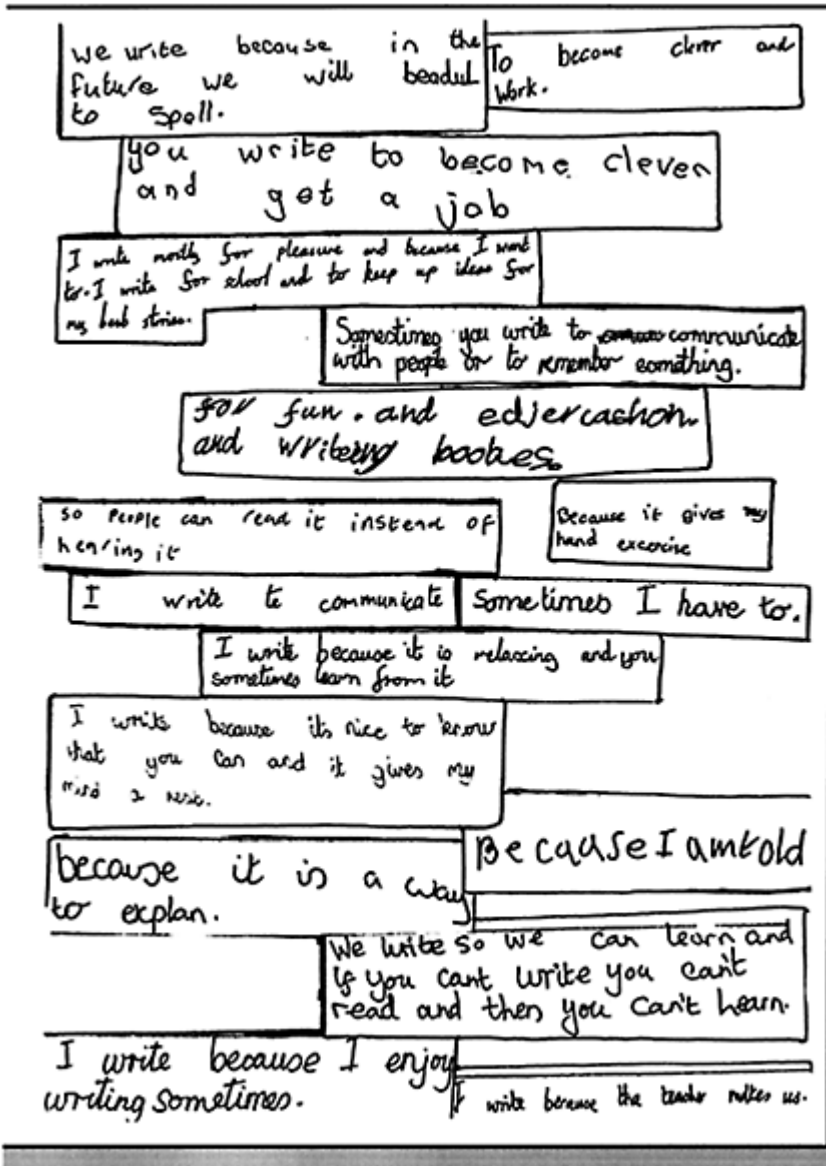 we write because in the
future we will beadul
to spell.
To become clever and
work.
you write to become clever
and get a job
I write mostly for pleasure and because I want
to. I write for school and to keep up ideas for
my best stories.
Sometimes you write to communicate
with people or to remember something.
for fun. and edjercashon.
and writeing bookes.
so people can read it instead of
hearing it
Because it gives my
hand excercise
I write to communicate
Sometimes I have to.
I write because it is relaxing and you
sometimes learn from it
I write because its nice to know
that you can and it gives my
mind a rest.
Because I am told
because it is a way
to explan.
We write so we can learn and
if you cant write you can't
read and then you can't learn.
I write because I enjoy
writing sometimes.
I write because the teacher makes us.